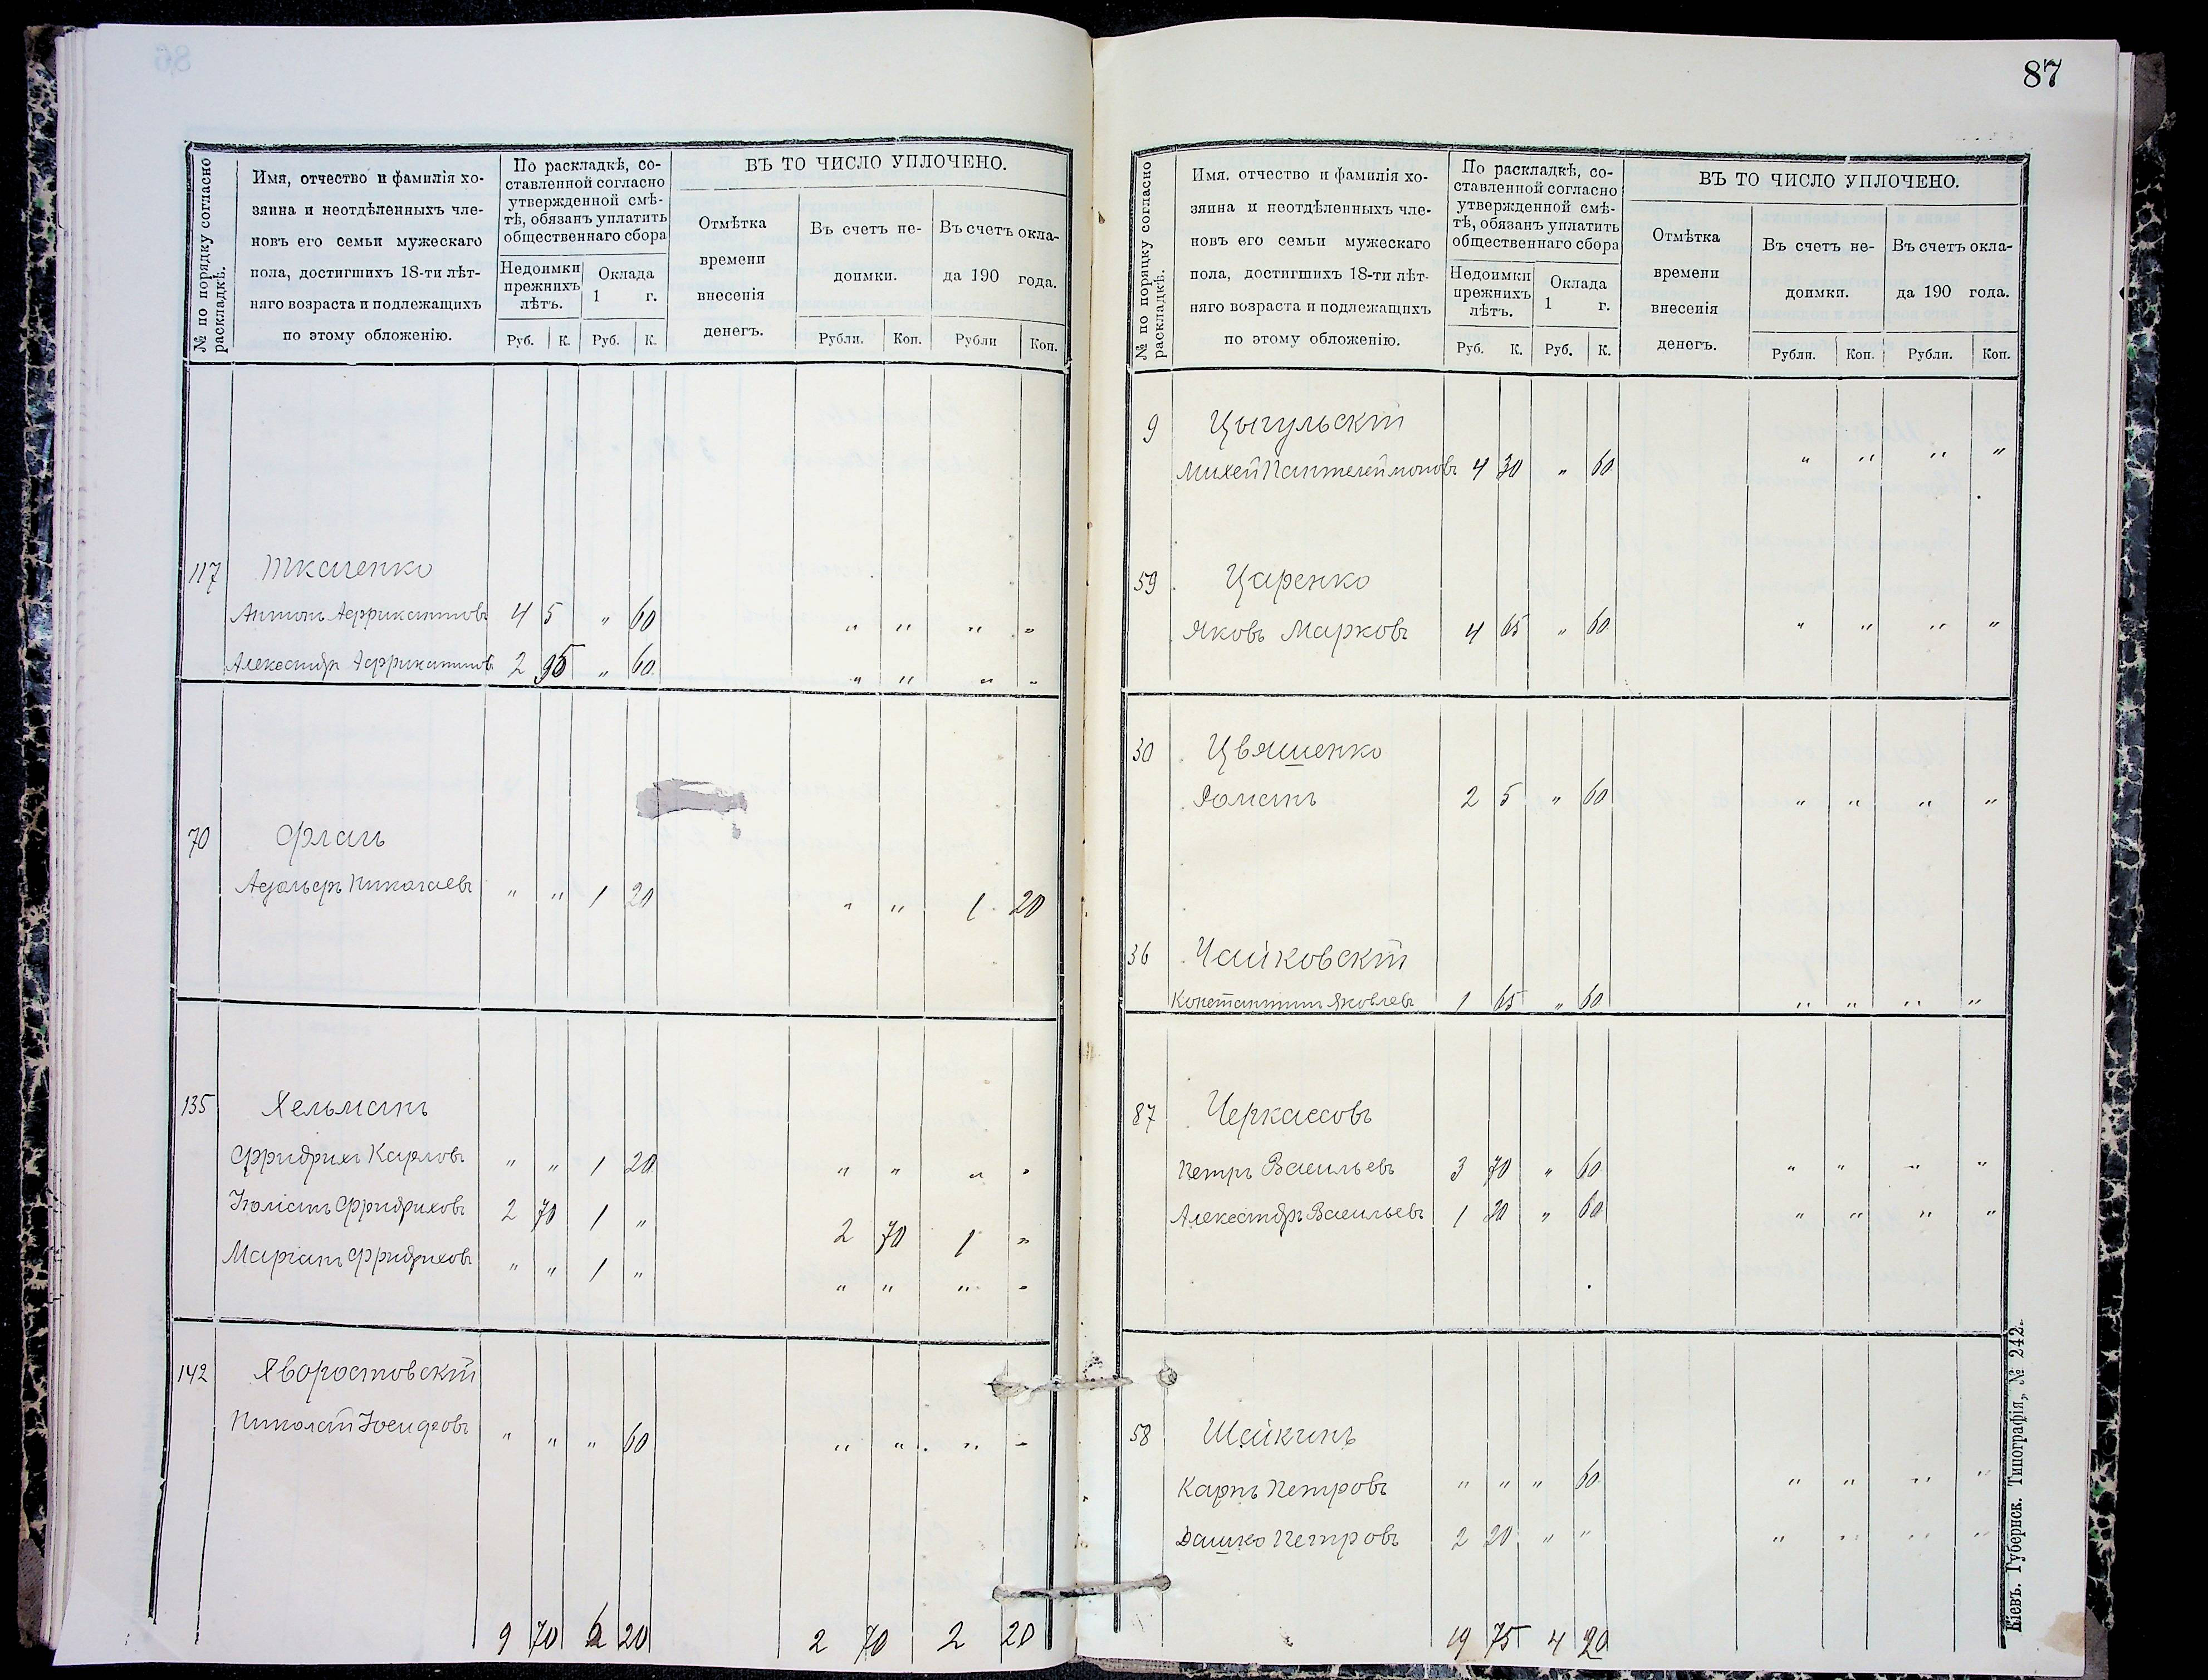 87
№ по порядку согласно раскладкѣ.
Имя, отчество и фамилія хо-
зяина и неотдѣленныхъ чле-
новъ его семьи мужескаго
пола, достигшихъ 18-ти лѣт-
няго возраста и подлежащихъ
по этому обложенію.
По раскладкѣ, со-
ставленной согласно
утвержденной смѣ-
тѣ, обязанъ уплатить
общественнаго сбора
Недоимки
прежнихъ
лѣтъ.
Оклада
1 г.
Руб. К. Руб. К.
ВЪ ТО ЧИСЛО УПЛОЧЕНО.
Отмѣтка
времени
внесенія
денегъ.
Въ счетъ не-
доимки.
Въ счетъ окла-
да 190 года.
Рубли. Коп. Рубли Коп.
117 Ткаченко
Антонъ Аффикантовъ 4 5 " 60 " " " "
Александръ Аффикантовъ 2 95 " 60 " " " "
70 Флачъ
Адольфъ Николаевъ " " 1 20 " " 1 20
135 Хельманъ
Фридрихъ Карловъ " " 1 20 " " " "
Юліанъ Фридриховъ 2 70 1 " 2 70 1 "
Маріанъ Фридриховъ " " 1 " " " " "
142 Хворостовскій
Николай Іосифовъ " " " 60 " " " "
9 70 6 20 2 70 2 20
№ по порядку согласно раскладкѣ.
Имя. отчество и фамилія хо-
зяина и неотдѣленныхъ чле-
новъ его семьи мужескаго
пола, достигшихъ 18-ти лѣт-
няго возраста и подлежащихъ
по этому обложенію.
По раскладкѣ, со-
ставленной согласно
утвержденной смѣ-
тѣ, обязанъ уплатить
общественнаго сбора
Недоимки
прежнихъ
лѣтъ.
Оклада
1 г.
Руб. К. Руб. К.
ВЪ ТО ЧИСЛО УПЛОЧЕНО.
Отмѣтка
времени
внесенія
денегъ.
Въ счетъ не-
доимки.
Въ счетъ окла-
да 190 года.
Рубли. Коп. Рубли. Коп.
9 Цыгульскій
Михей Пантелеймоновъ 4 30 " 60 " " " "
59 Царенко
Яковъ Марковъ 4 65 " 60 " " " "
30 Цвяшенко
Романъ 2 5 " 60 " " " "
36 Чайковскій
Константинъ Яковлевъ 1 65 " 60 " " " "
87 Черкасовъ
Петръ Васильевъ 3 70 " 60 " " " "
Александръ Васильевъ 1 20 " 60 " " " "
58 Шайкинъ
Карпъ Петровъ " " " 60 " " " "
Дашко Петровъ 2 20 " " " " " "
19 75 4 20
Кіевъ. Губернск. Типографія, № 242.